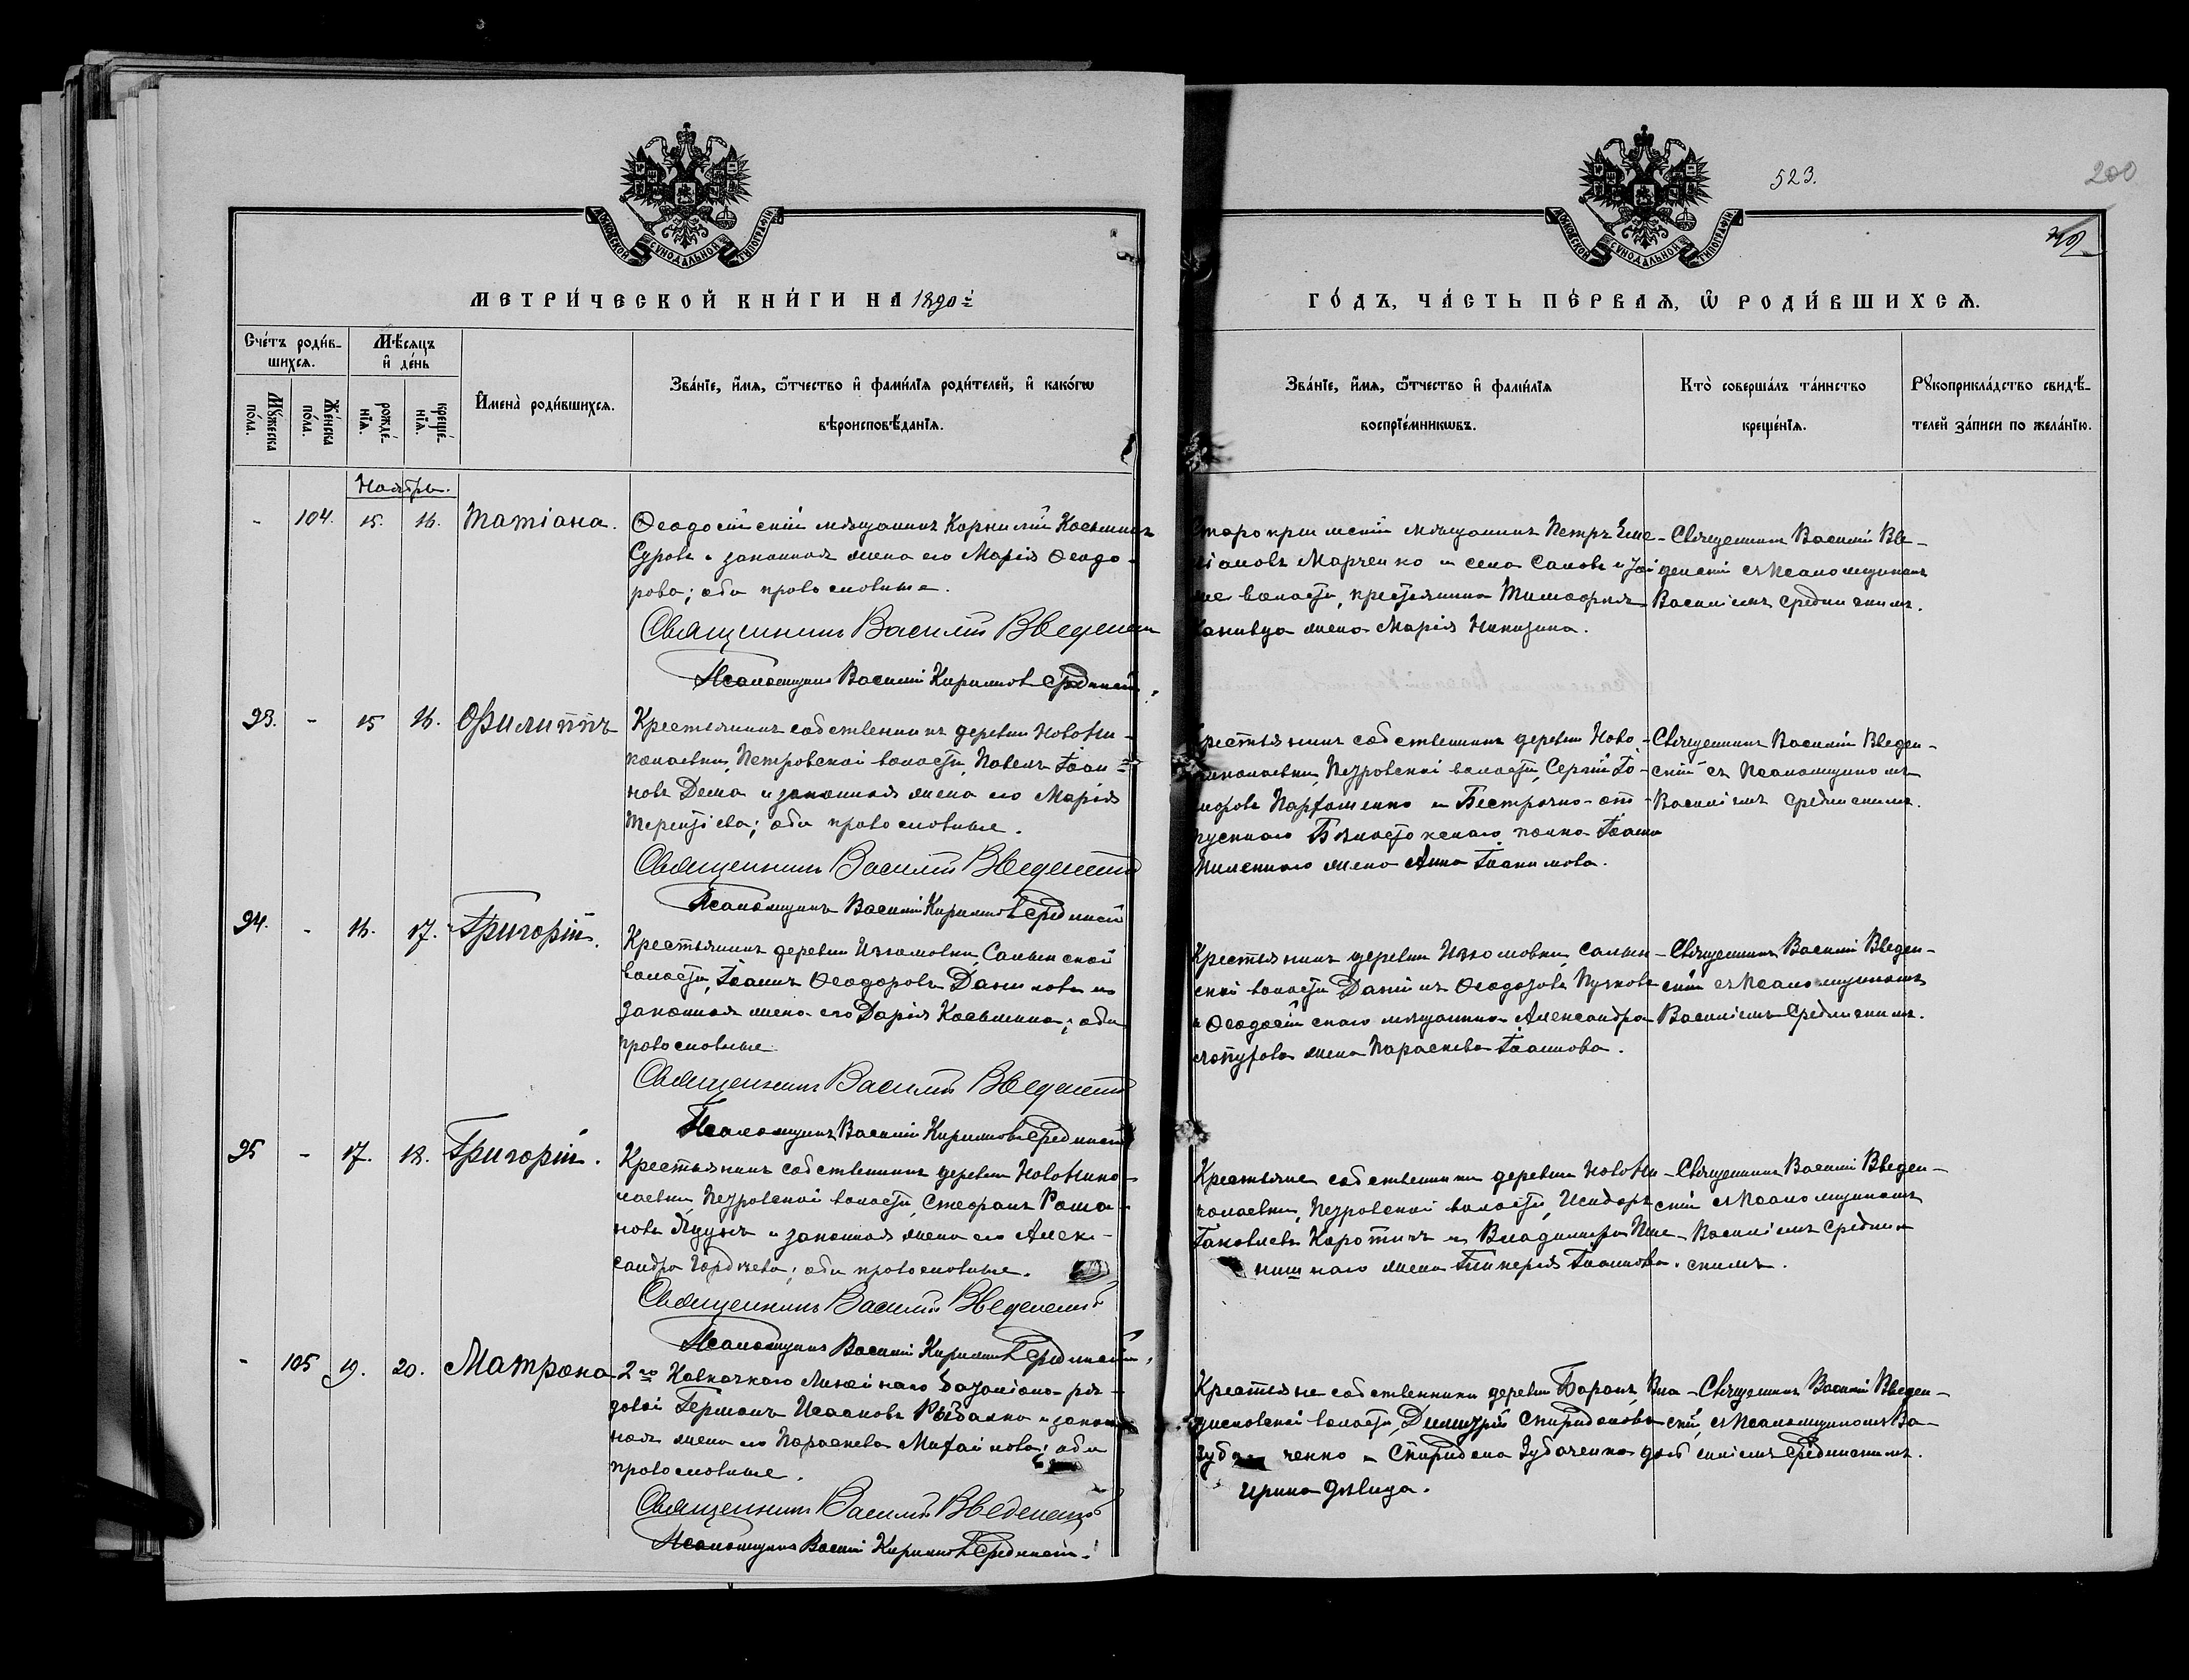 523.
200
МОСКОВСКОЙ СѴНОДАЛЬНОЙ ТИПОГРАФІИ
МОСКОВСКОЙ СѴНОДАЛЬНОЙ ТИПОГРАФІИ
МЕТРИ́ЧЕСКОЙ КНИ́ГИ НА 1890й
ГО́ДЪ, ЧА́СТЬ ПЕ́РВАѦ, Ѡ҆ РОДИ́ВШИХСѦ.
Сче́тъ роди́в-
шихсѧ.
Мѣ́сѧцъ
и҆ де́нь
Мꙋ́жеска
по́ла.
Же́нска
по́ла.
рожде́-
нїѧ.
креще́-
нїѧ.
И҆мена̀ роди́вшихсѧ.
Зва́нїе, и҆́мѧ, ѻ҆́тчество и҆ фами́лїѧ роди́телей, и҆ како́гѡ
вѣроисповѣ́данїѧ.
Зва́нїе, и҆́мѧ, ѻ҆́тчество и҆ фами́лїѧ
воспрїе́мникѡвъ.
Кто̀ соверша́лъ та́инство
креще́нїѧ.
Рꙋкоприкла́дство свидѣ́-
телей за́писи по жела́нїю.
Ноябрь.
- 104. 15. 16. Татіана.
Ѳеодосійскій мѣщанинъ Корнилій Косьминъ
Суровъ и законная жена его Марія Ѳеодо-
рова; оба православные.
Священникъ Василій Введенскій
Псаломщикъ Василій Кирилловъ Срединскій.
Старокрымскій мѣщанинъ Петръ Еме-
ліановъ Марченко и села
волости, крестьянина Тимофея
жена Марія Никитина.
Священникъ Василій Вве-
денскій съ Псаломщикомъ
Василіемъ Срединскимъ.
93. - 15 16. Филиппъ
Крестьянинъ собственникъ деревни НовоНи-
колаевки, Петровской волости, Павелъ Іоан-
новъ Дема и законная жена его Марія
Терентіева; оба православные.
Священникъ Василій Введенскій
Псаломщикъ Василій Кирилловъ Срединскій
Крестьянинъ собственникъ деревни Ново-
николаевки, Петровской волости, Сергій
Пархоменко и Безсрочно-от-
пускнаго Бѣлостокскаго полка Іоанна
жена Анна Іоакимова.
Священникъ Василій Введен-
скій съ Псаломщикомъ
Василіемъ Срединскимъ.
94. - 16. 17. Григорій.
Крестьянинъ деревни Изюмовки, Салынской
волости, Іоаннъ Ѳеодоровъ Даниловъ и
законная жена его Дарія Косьмина; оба
православные.
Священникъ Василій Введенскій
Псаломщикъ Василій Кирилловъ Срединскій
Крестьянинъ деревни Изюмовки, Салын-
ской волости Даніилъ Ѳеодоровъ
и Ѳеодосійскаго мѣщанина Александра
жена Параскева Іоаннова.
Священникъ Василій Введен-
скій съ Псаломщикомъ
Василіемъ Срединскимъ.
95 - 17. 18. Григорій.
Крестьянинъ собственникъ деревни НовоНико-
лаевки, Петровской волости, Стефанъ Рома-
новъ и законная жена его Алек-
сандра Гордіева; оба православные.
Священникъ Василій Введенскій
Псаломщикъ Василій Кирилловъ Срединскій.
Крестьяне собственники деревни НовоНи-
колаевки, Петровской волости, Исидоръ
Іаковлевъ Коротичъ и Владимира Пше-
ничнаго жена Гликерія Іоаннова.
Священникъ Василій Введен-
скій съ Псаломщикомъ
Василіемъ Средин-
скимъ.
- 105 19. 20. Матрона
2го Кавказкаго Линейнаго баталіона ря-
довой Германъ Исааковъ Рыбалко и закон-
ная жена его Параскева Михайлова; оба
православные.
Священникъ Василій Введенскій
Псаломщикъ Василій Кирилловъ Срединскій.
Крестьяне собственники деревни Баранъ, Вла-
диславской волости, Димитрій Спиридоновъ
Зуба ченко и Спиридона Зубаченко дочь
Ирина дѣвица.
Священникъ Василій Введен-
скій, съ Псаломщикомъ Ва-
силіемъ Срединскимъ.